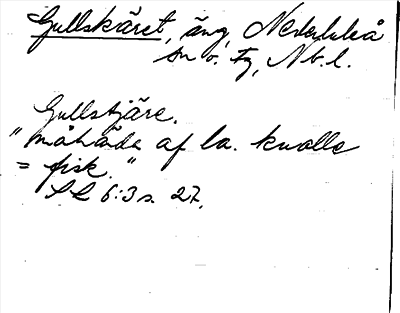 Gullskäret, äng, Nederluleå
sn o. tg, Nb. l.
Gullstjäre.
"måhända af la. kuolle
= fisk."
SL 6:3 s. 27.